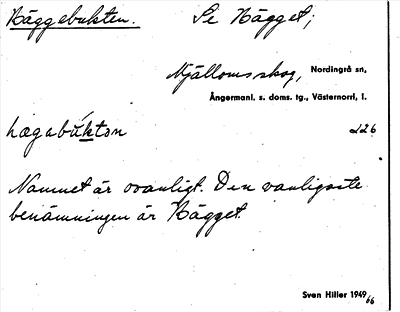 Häggebukten. Se Hägget;
Mjälloms skog, Nordingrå sn,
Ångermanl. s. doms. tg., Västernorrl, l.
hægabuktən 226
Namnet är ovanligt. Den vanligaste
benämningen är Hägget.
Sven Hiller 1949
66